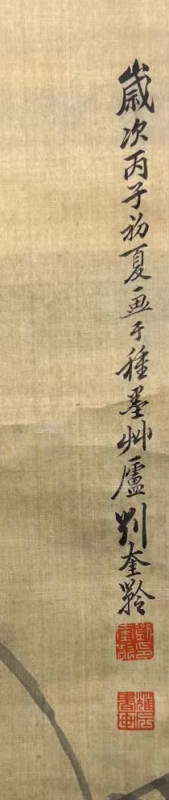 歲次丙子初夏画于種墨艸廬劉奎齡